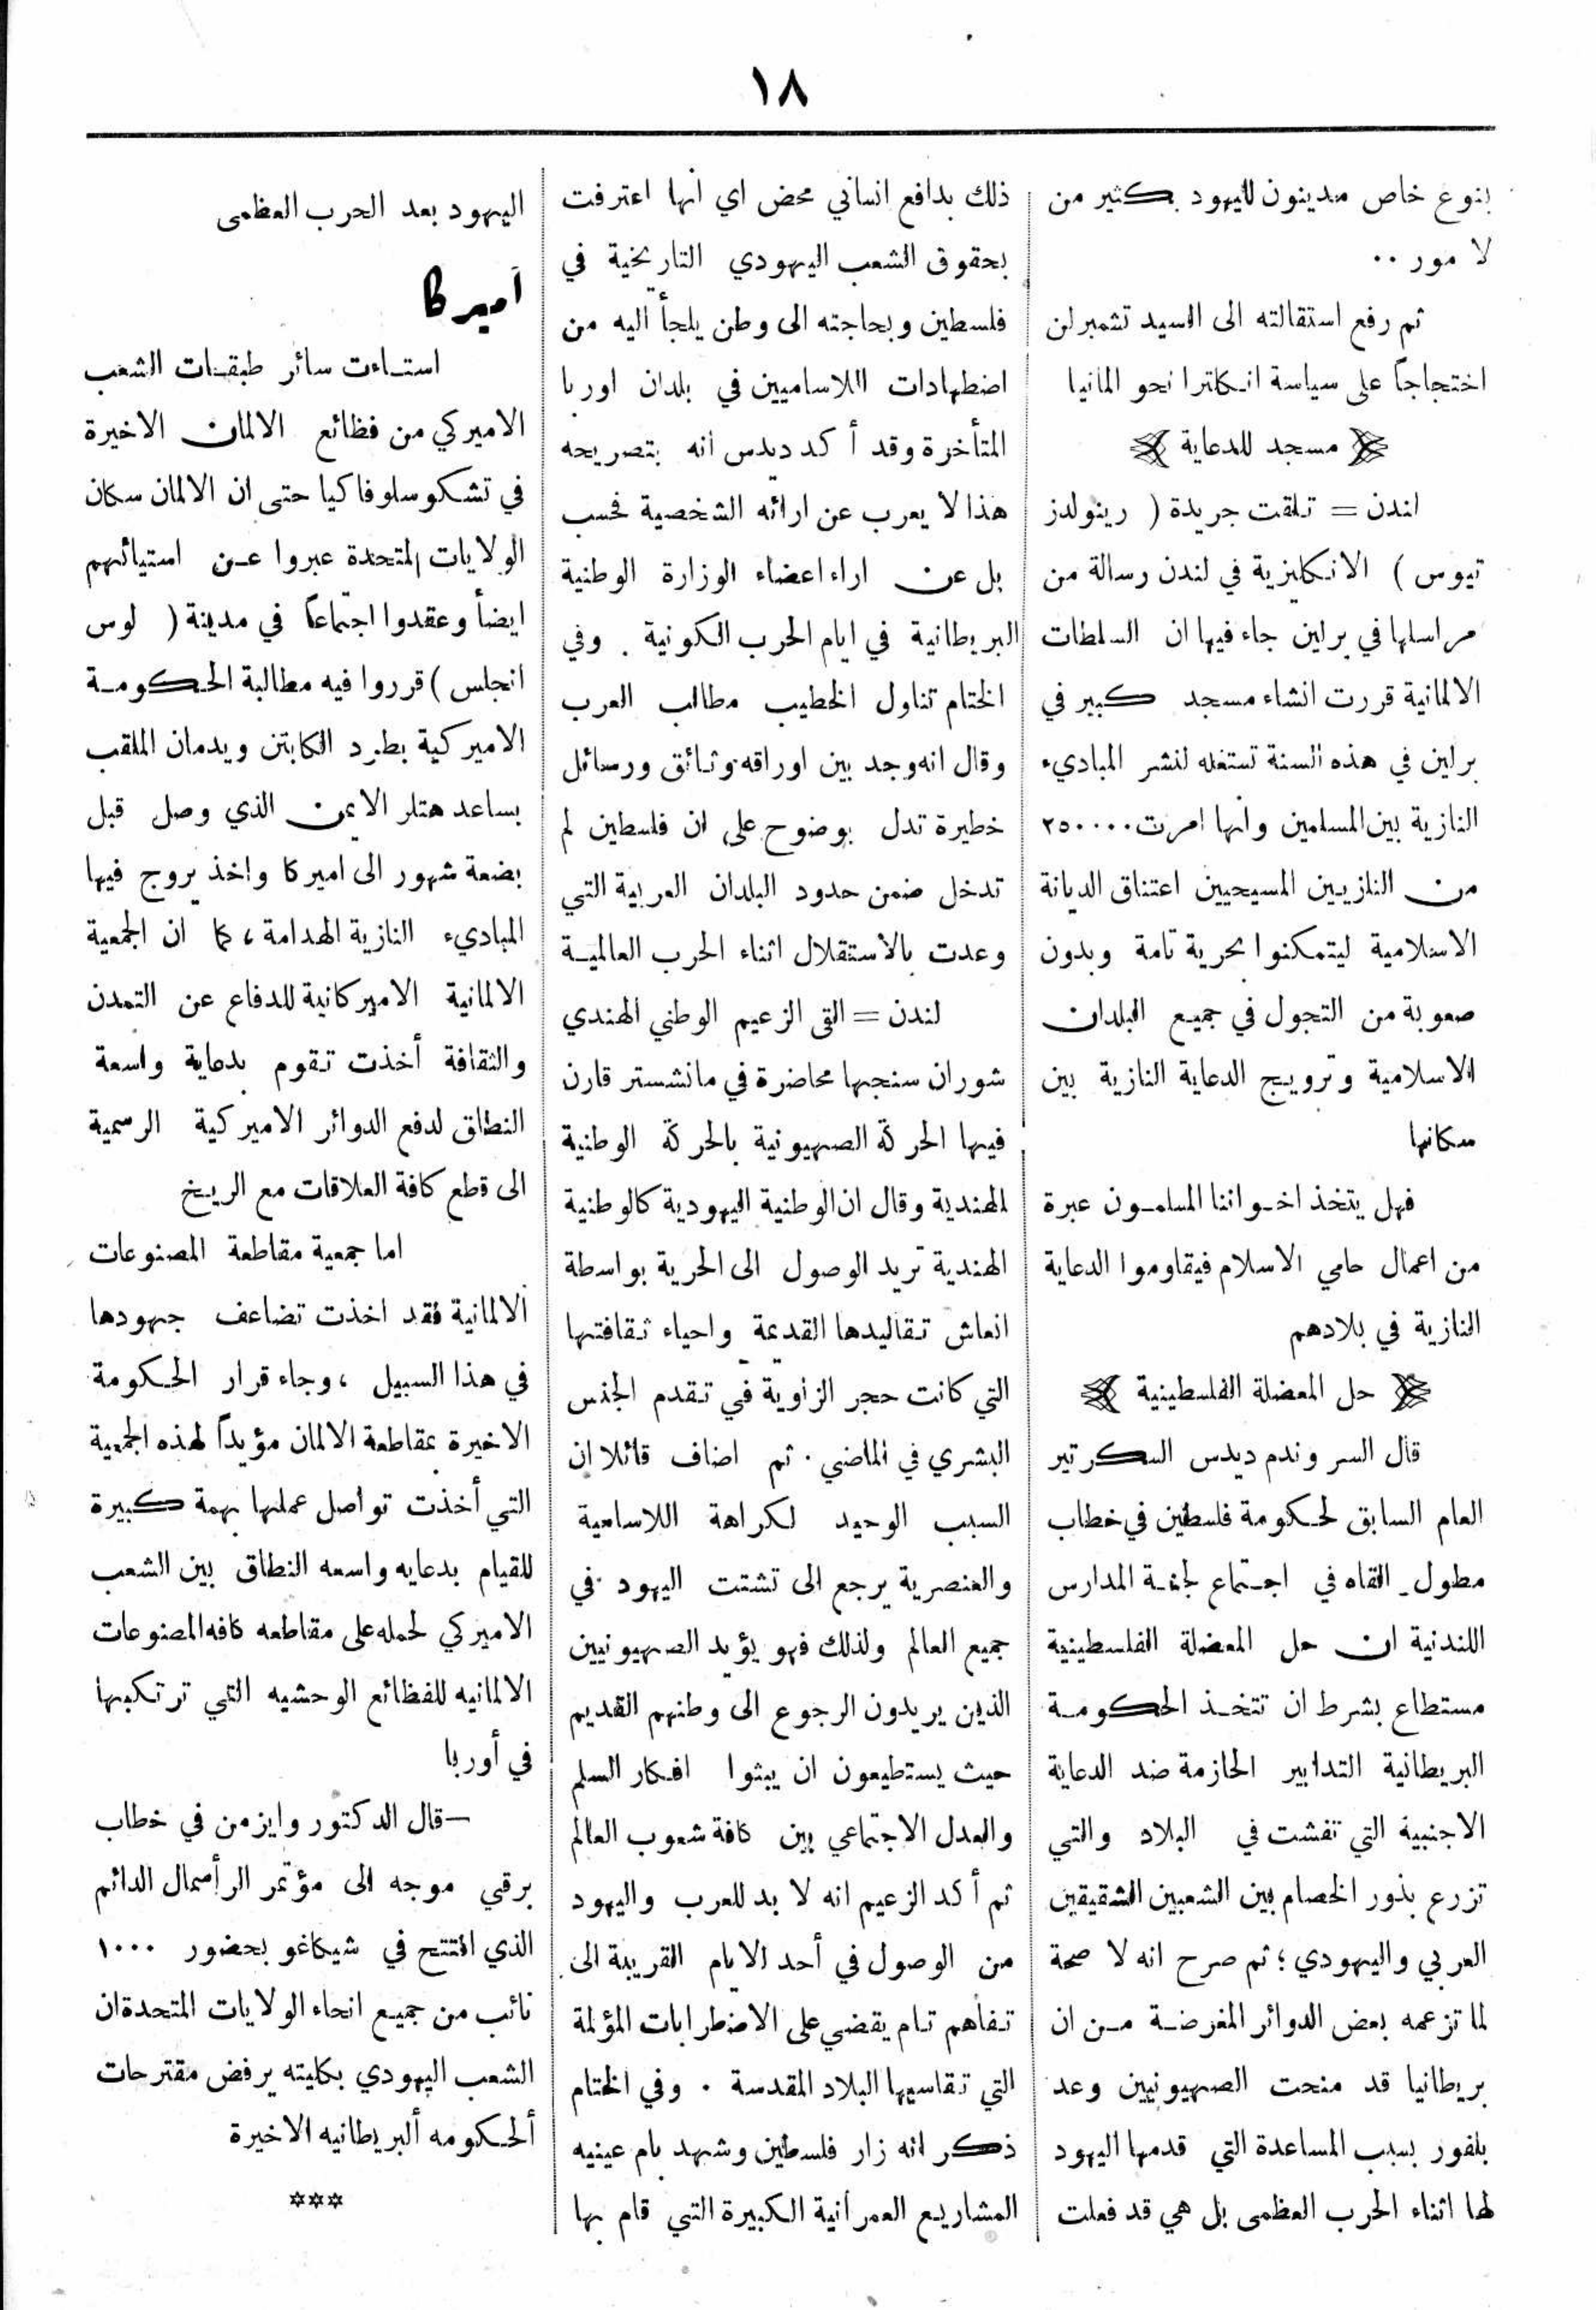 ١٨
بنوع خاص مدينون لليهود بكثير من
لا مور ..
ثم رفع استقالته الى السيد تشمبرلن
اختجاجاً على سياسة انكلترا نحو المانيا
مسجد للدعاية
لندن = تلقت جريدة ( رينولدز
تيوس ) الانكليزية في لندن رسالة من
مراسلها في برلين جاء فيها ان السلطات
الالمانية قررت انشاء مسجد كبير في
برلين في هذه السنة تستغله لنشر المباديء
النازية بين المسلمين وانها امرت ٢٥٠٠٠٠
من النازيين المسيحيين اعتناق الديانة
الاسلامية ليتمكنوا بحرية تامة وبدون
صعوبة من التجول في جميع البلدان
الاسلامية وترويج الدعاية النازية بين
سكانها
فهل يتخذ اخواننا المسلمون عبرة
من اعمال حامي الاسلام فيقاوموا الدعاية
النازية في بلادهم
حل المعضلة الفلسطينية
قال السر وندم ديدس السكرتير
العام السابق لحكومة فلسطين في خطاب
مطول القاه في اجتماع لجنة المدارس
اللندنية ان حل المعضلة الفلسطينية
مستطاع بشرط ان تتخذ الحكومة
البريطانية التدابير الحازمة ضد الدعاية
الاجنبية التي تفشت في البلاد والتي
تزرع بذور الخصام بين الشعبين الشقيقين
العربي واليهودي ؛ ثم صرح انه لا صحة
لما تزعمه بعض الدوائر المغرضة من ان
بريطانيا قد منحت الصهيونيين وعد
بلفور بسبب المساعدة التي قدمها اليهود
لها اثناء الحرب العظمى بل هي قد فعلت
ذلك بدافع انساني محض اي انها اعترفت
بحقوق الشعب اليهودي التاريخية في
فلسطين وبحاجته الى وطن يلجأ اليه من
اضطهادات اللاساميين في بلدان اوربا
المتأخرة وقد أكد ديدس انه بتصريحه
هذا لا يعرب عن ارائه الشخصية فحسب
بل عن اراء اعضاء الوزارة الوطنية
البريطانية في ايام الحرب الكونية . وفي
الختام تناول الخطيب مطالب العرب
وقال انه وجد بين اوراقه وثائق ورسائل
خطيرة تدل بوضوح على ان فلسطين لم
تدخل ضمن حدود البلدان العربية التي
وعدت بالاستقلال اثناء الحرب العالمية
لندن = القى الزعيم الوطني الهندي
شوران سنجها محاضرة في مانشستر قارن
فيها الحركة الصهيونية بالحركة الوطنية
الهندية وقال ان الوطنية اليهودية كالوطنية
الهندية تريد الوصول الى الحرية بواسطة
انعاش تقاليدها القديمة واحياء ثقافتها
التي كانت حجر الزاوية في تقدم الجنس
البشري في الماضي . ثم اضاف قائلا ان
السبب الوحيد لكراهة اللاسامية
والعنصرية يرجع الى تشتت اليهود في
جميع العالم ولذلك فهو يؤيد الصهيونيين
الذين يريدون الرجوع الى وطنهم القديم
حيث يستطيعون ان يبثوا افكار السلم
والعدل الاجتماعي بين كافة شعوب العالم
ثم أكد الزعيم انه لا بد للعرب واليهود
من الوصول في أحد الايام القريبة الى
تفاهم تام يقضي على الاضطرابات المؤلمة
التي تقاسيها البلاد المقدسة . وفي الختام
ذكر انه زار فلسطين وشهد بام عينيه
المشاريع العمرانية الكبيرة التي قام بها
اليهود بعد الحرب العظمى
أميركا
استاءت سائر طبقات الشعب
الاميركي من فظائع الالمان الاخيرة
في تشكوسلوفاكيا حتى ان الالمان سكان
الولايات المتحدة عبروا عن استيائهم
ايضاً وعقدوا اجتماعاً في مدينة ( لوس
انجلس ) قرروا فيه مطالبة الحكومة
الاميركية بطرد الكابتن ويدمان الملقب
بساعد هتلر الايمن الذي وصل قبل
بضعة شهور الى اميركا واخذ يروج فيها
المباديء النازية الهدامة ، كما ان الجمعية
الالمانية الاميركانية للدفاع عن التمدن
والثقافة أخذت تقوم بدعاية واسعة
النطاق لدفع الدوائر الاميركية الرسمية
الى قطع كافة العلاقات مع الريخ
اما جمعية مقاطعة المصنوعات
الالمانية فقد اخذت تضاعف جهودها
في هذا السبيل ، وجاء قرار الحكومة
الاخيرة بمقاطعة الالمان مؤيداً لهذه الجمعية
التي أخذت تواصل عملها بهمة كبيرة
للقيام بدعايه واسعه النطاق بين الشعب
الاميركي لحمله على مقاطعه كافه المصنوعات
الالمانيه للفظائع الوحشيه التي ترتكبها
في أوربا
— قال الدكتور وايزمن في خطاب
برقي موجه الى مؤتمر الرأسمال الدائم
الذي افتتح في شيكاغو بحضور ١٠٠٠
نائب من جميع انحاء الولايات المتحدة ان
الشعب اليهودي بكليته يرفض مقترحات
ألحكومه ألبريطانيه الاخيرة
***